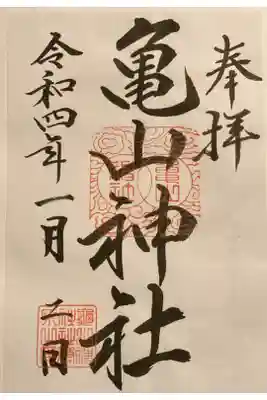 奉拝
亀山神社
令和四年一月二日